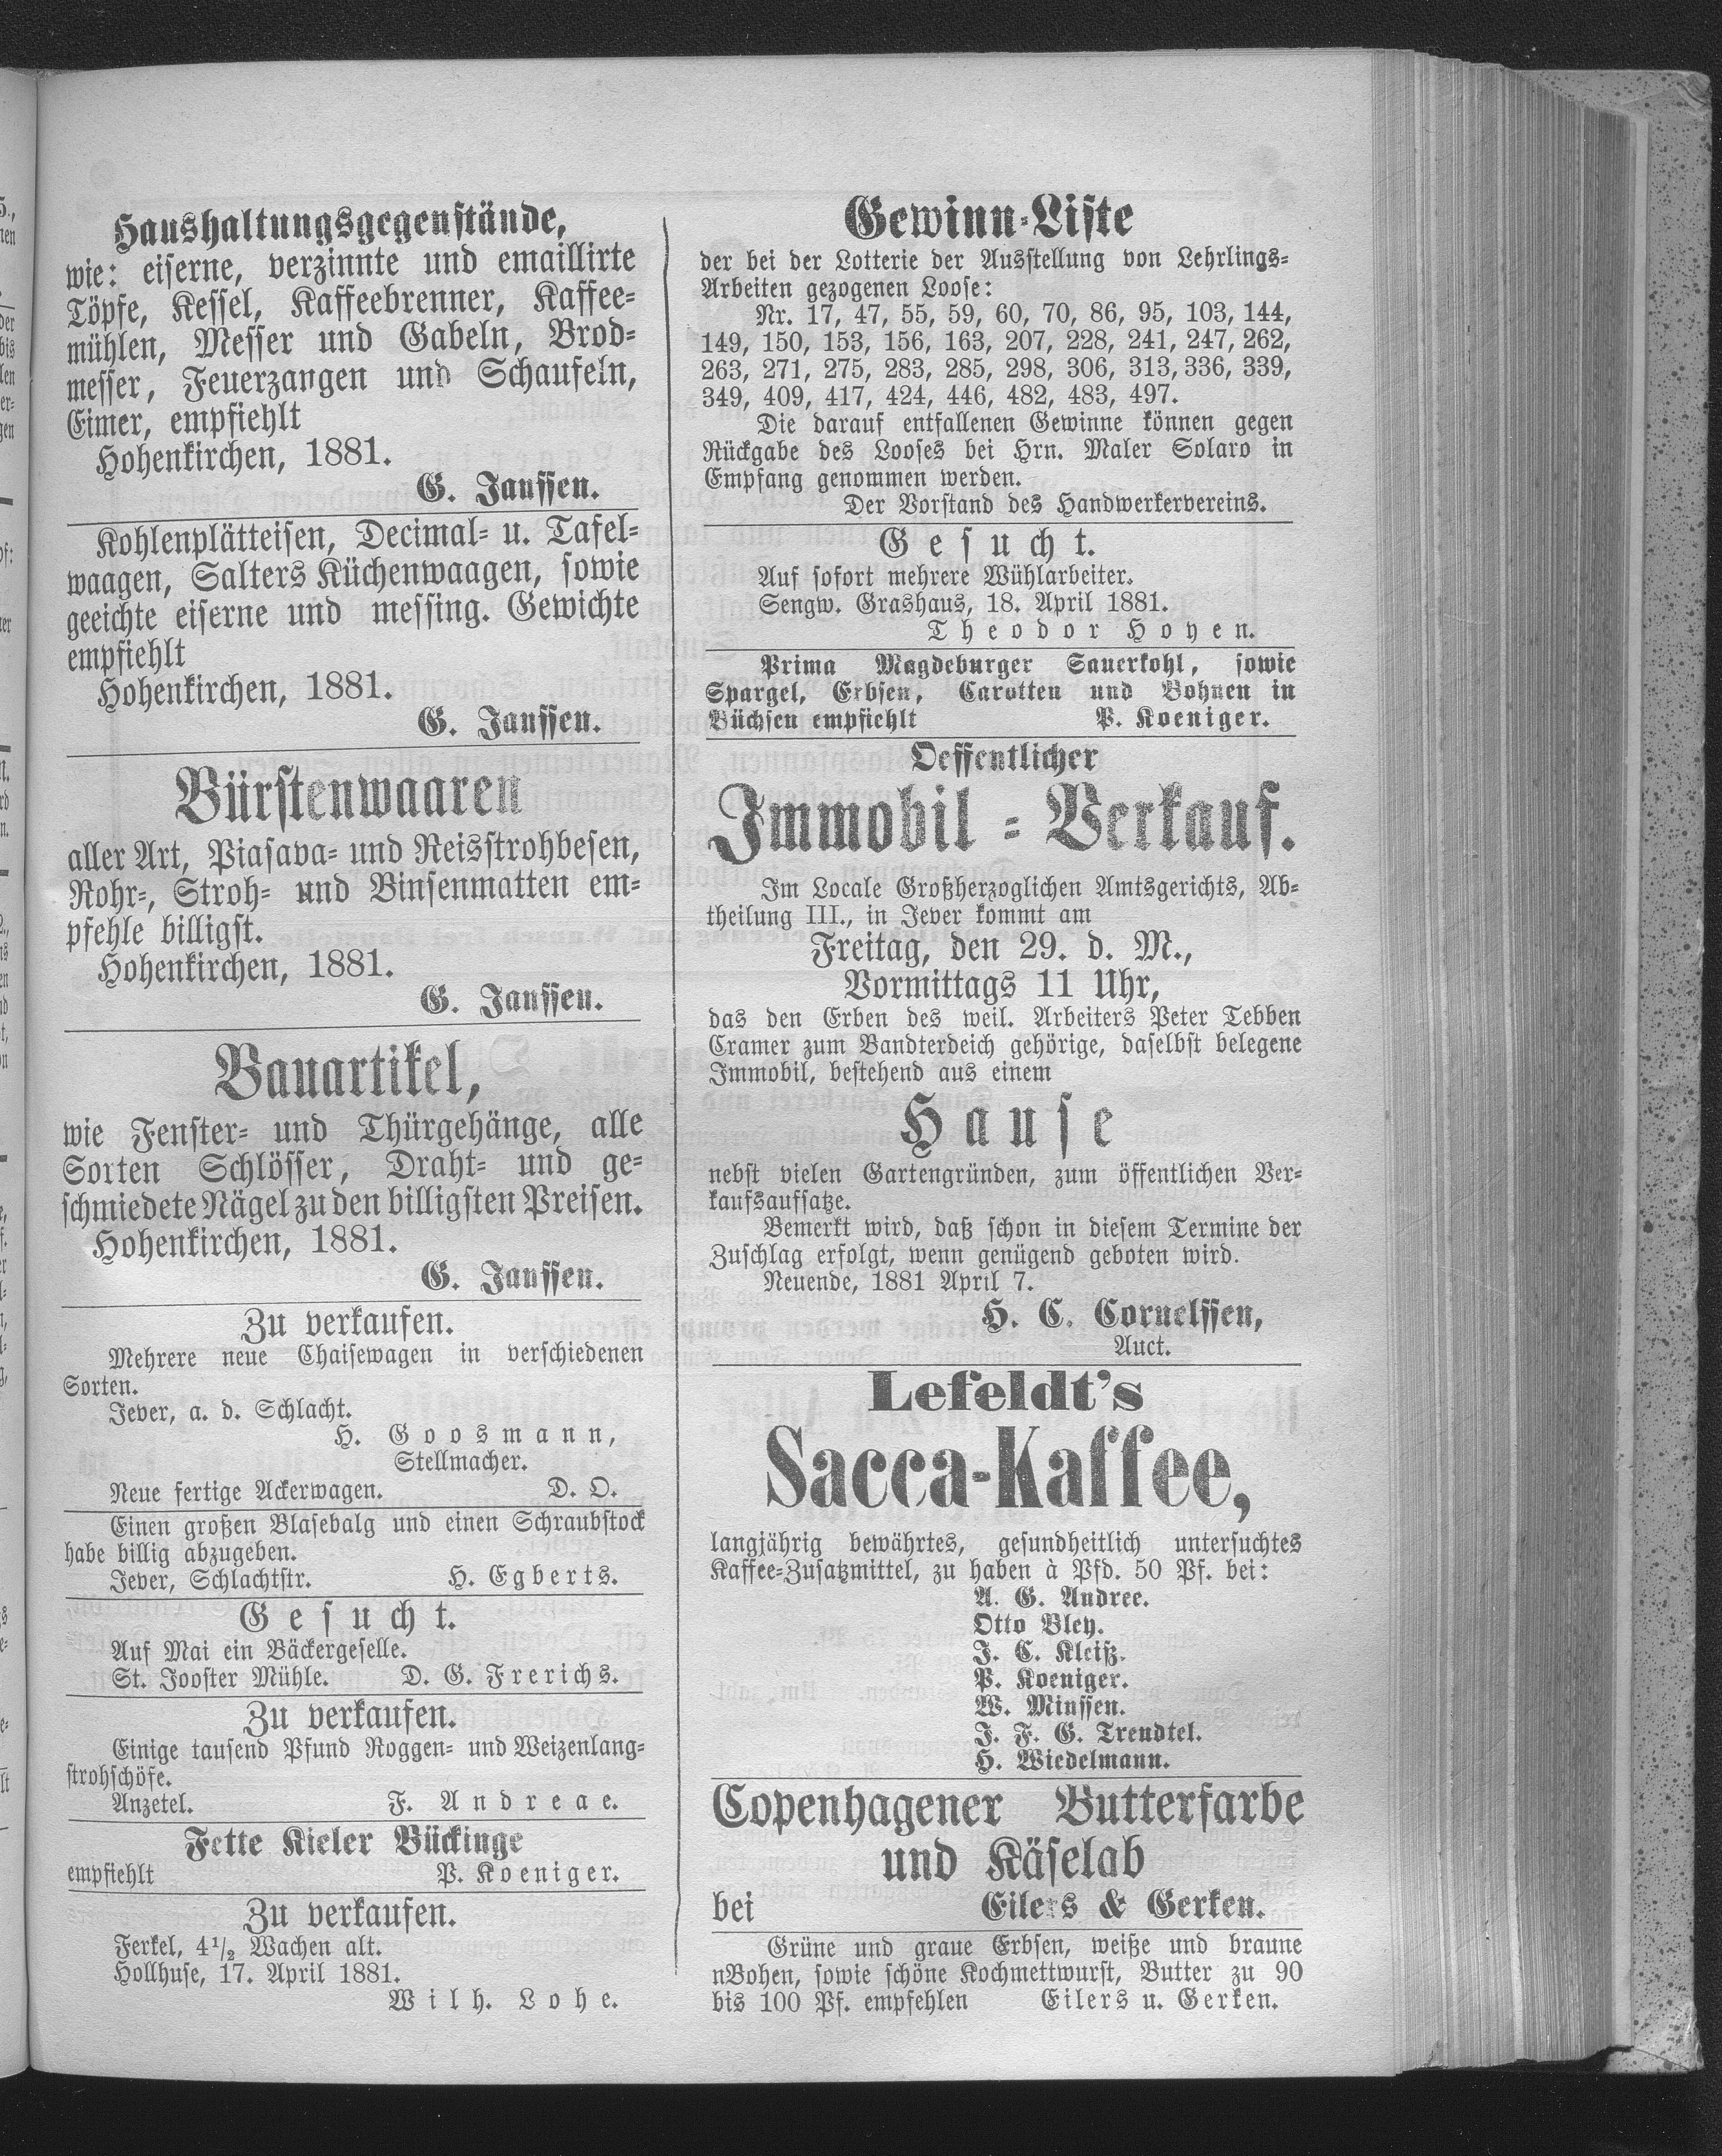 Haushaltungsgegenstände,
wie: eiserne, verzinnte und emaillirte
Töpfe, Kessel, Kaffeebrenner, Kaffee-
mühlen, Messer und Gabeln, Brod-
messer, Feuerzangen und Schaufeln,
Eimer, empfiehlt
Hohenkirchen, 1881.
G. Janssen.
Kohlenplätteisen, Decimal- u. Tafel-
waagen, Salters Küchenwaagen, sowie
geeichte eiserne und messing. Gewichte
empfiehlt
Hohenkirchen, 1881.
G. Janssen.
Bürstenwaaren
aller Art, Piasava- und Reisstrohbesen,
Rohr-, Stroh- und Binsenmatten em-
pfehle billigst.
Hohenkirchen, 1881.
G. Janssen.
Bauartikel,
wie Fenster- und Thürgehänge, alle
Sorten Schlösser, Draht- und ge-
schmiedete Nägel zu den billigsten Preisen.
Hohenkirchen, 1881.
G. Janssen.
Zu verkaufen.
Mehrere neue Chaisewagen in verschiedenen
Sorten.
Jever, a. d. Schlacht.
H. Goosmann,
Stellmacher.
Neue fertige Ackerwagen. D. O.
Einen großen Blasebalg und einen Schraubstock
habe billig abzugeben.
Jever, Schlachtstr. H. Egberts.
Gesucht.
Auf Mai ein Bäckergeselle.
St. Jooster Mühle. D. G. Frerichs.
Zu verkaufen.
Einige tausend Pfund Roggen- und Weizenlang-
strohschöfe.
Anzetel. F. Andreae.
Fette Kieler Bückinge
empfiehlt P. Koeniger.
Zu verkaufen.
Ferkel, 4½ Wachen alt.
Hollhuse, 17. April 1881.
Wilh. Lohe.
Gewinn-Liste
der bei der Lotterie der Ausstellung von Lehrlings-
Arbeiten gezogenen Loose:
Nr. 17, 47, 55, 59, 60, 70, 86, 95, 103, 144,
149, 150, 153, 156, 163, 207, 228, 241, 247, 262,
263, 271, 275, 283, 285, 298, 306, 313, 336, 339,
349, 409, 417, 424, 446, 482, 483, 497.
Die darauf entfallenen Gewinne können gegen
Rückgabe des Looses bei Hrn. Maler Solaro in
Empfang genommen werden.
Der Vorstand des Handwerkervereins.
Gesucht.
Auf sofort mehrere Wühlarbeiter.
Sengw. Grashaus, 18. April 1881.
Theodor Hoyen.
Prima Magdeburger Sauerkohl, sowie
Spargel, Erbsen, Carotten und Bohnen in
Büchsen empfiehlt P. Koeniger.
Oeffentlicher
Immobil-Verkauf.
Im Locale Großherzoglichen Amtsgerichts, Ab-
theilung III., in Jever kommt am
Freitag, den 29. d. M.,
Vormittags 11 Uhr,
das den Erben des weil. Arbeiters Peter Tebben
Cramer zum Bandterdeich gehörige, daselbst belegene
Immobil, bestehend aus einem
Hause
nebst vielen Gartengründen, zum öffentlichen Ver-
kaufsaufsatze.
Bemerkt wird, daß schon in diesem Termine der
Zuschlag erfolgt, wenn genügend geboten wird.
Neuende, 1881 April 7.
H. C. Cornelssen,
Auct.
Lefeldt's
Sacca-Kaffee,
langjährig bewährtes, gesundheitlich untersuchtes
Kaffee-Zusatzmittel, zu haben à Pfd. 50 Pf. bei:
A. G. Andree.
Otto Bley.
J. C. Kleiß.
P. Koeniger.
W. Minssen.
J. F. G. Trendtel.
H. Wiedelmann.
Copenhagener Butterfarbe
und Käselab
bei Eilers & Gerken.
Grüne und graue Erbsen, weiße und braune
nBohen, sowie schöne Kochmettwurst, Butter zu 90
bis 100 Pf. empfehlen Eilers u. Gerken.